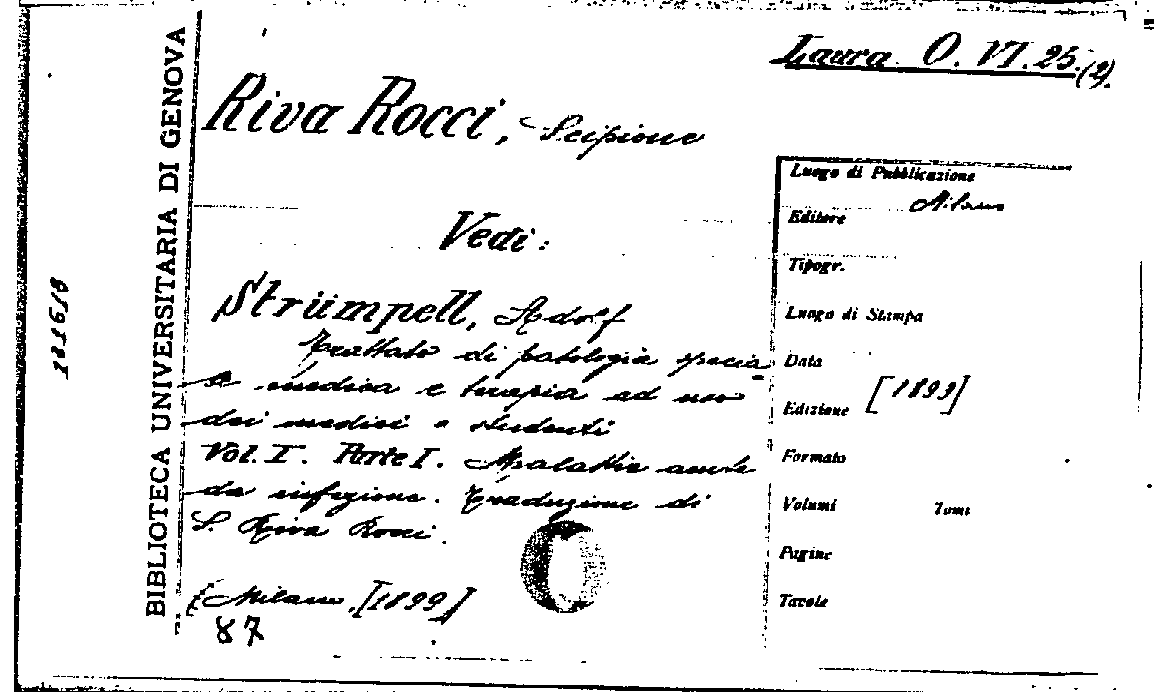 Laura O. VI. 25.(2).
Riva Rocci, Scipione
Vedi:
Strümpell, Adolf
Trattato di patologia specia
le medica e terapia ad uso
dei medici e studenti
Vol. I. Parte I. Malattie acute
da infezione. Traduzione di
S. Riva Rocci.
Milano, [1899]
87
BIBLIOTECA UNIVERSITARIA DI GENOVA
Luogo di Pubblicazione
Milano
Editore
Tipogr.
Luogo di Stampa
Data
[1899]
Edizione
Formato
Volumi Tomi
Pagine
Tavole